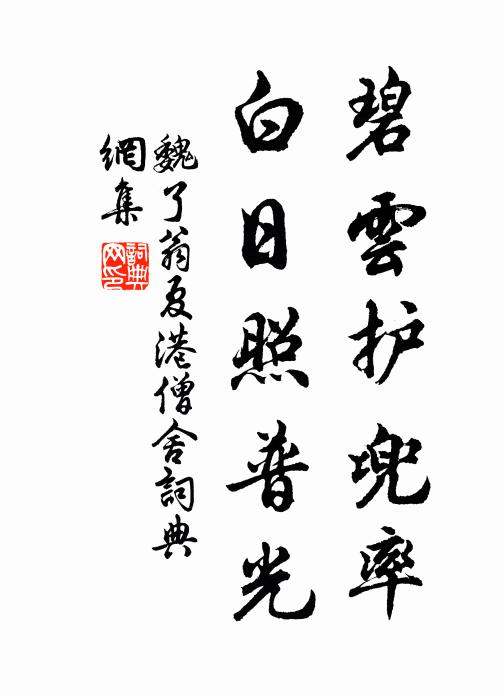 碧雲护兜率
白日照普光
魏了翁夏港僧舍詞典
網集
詞典網印